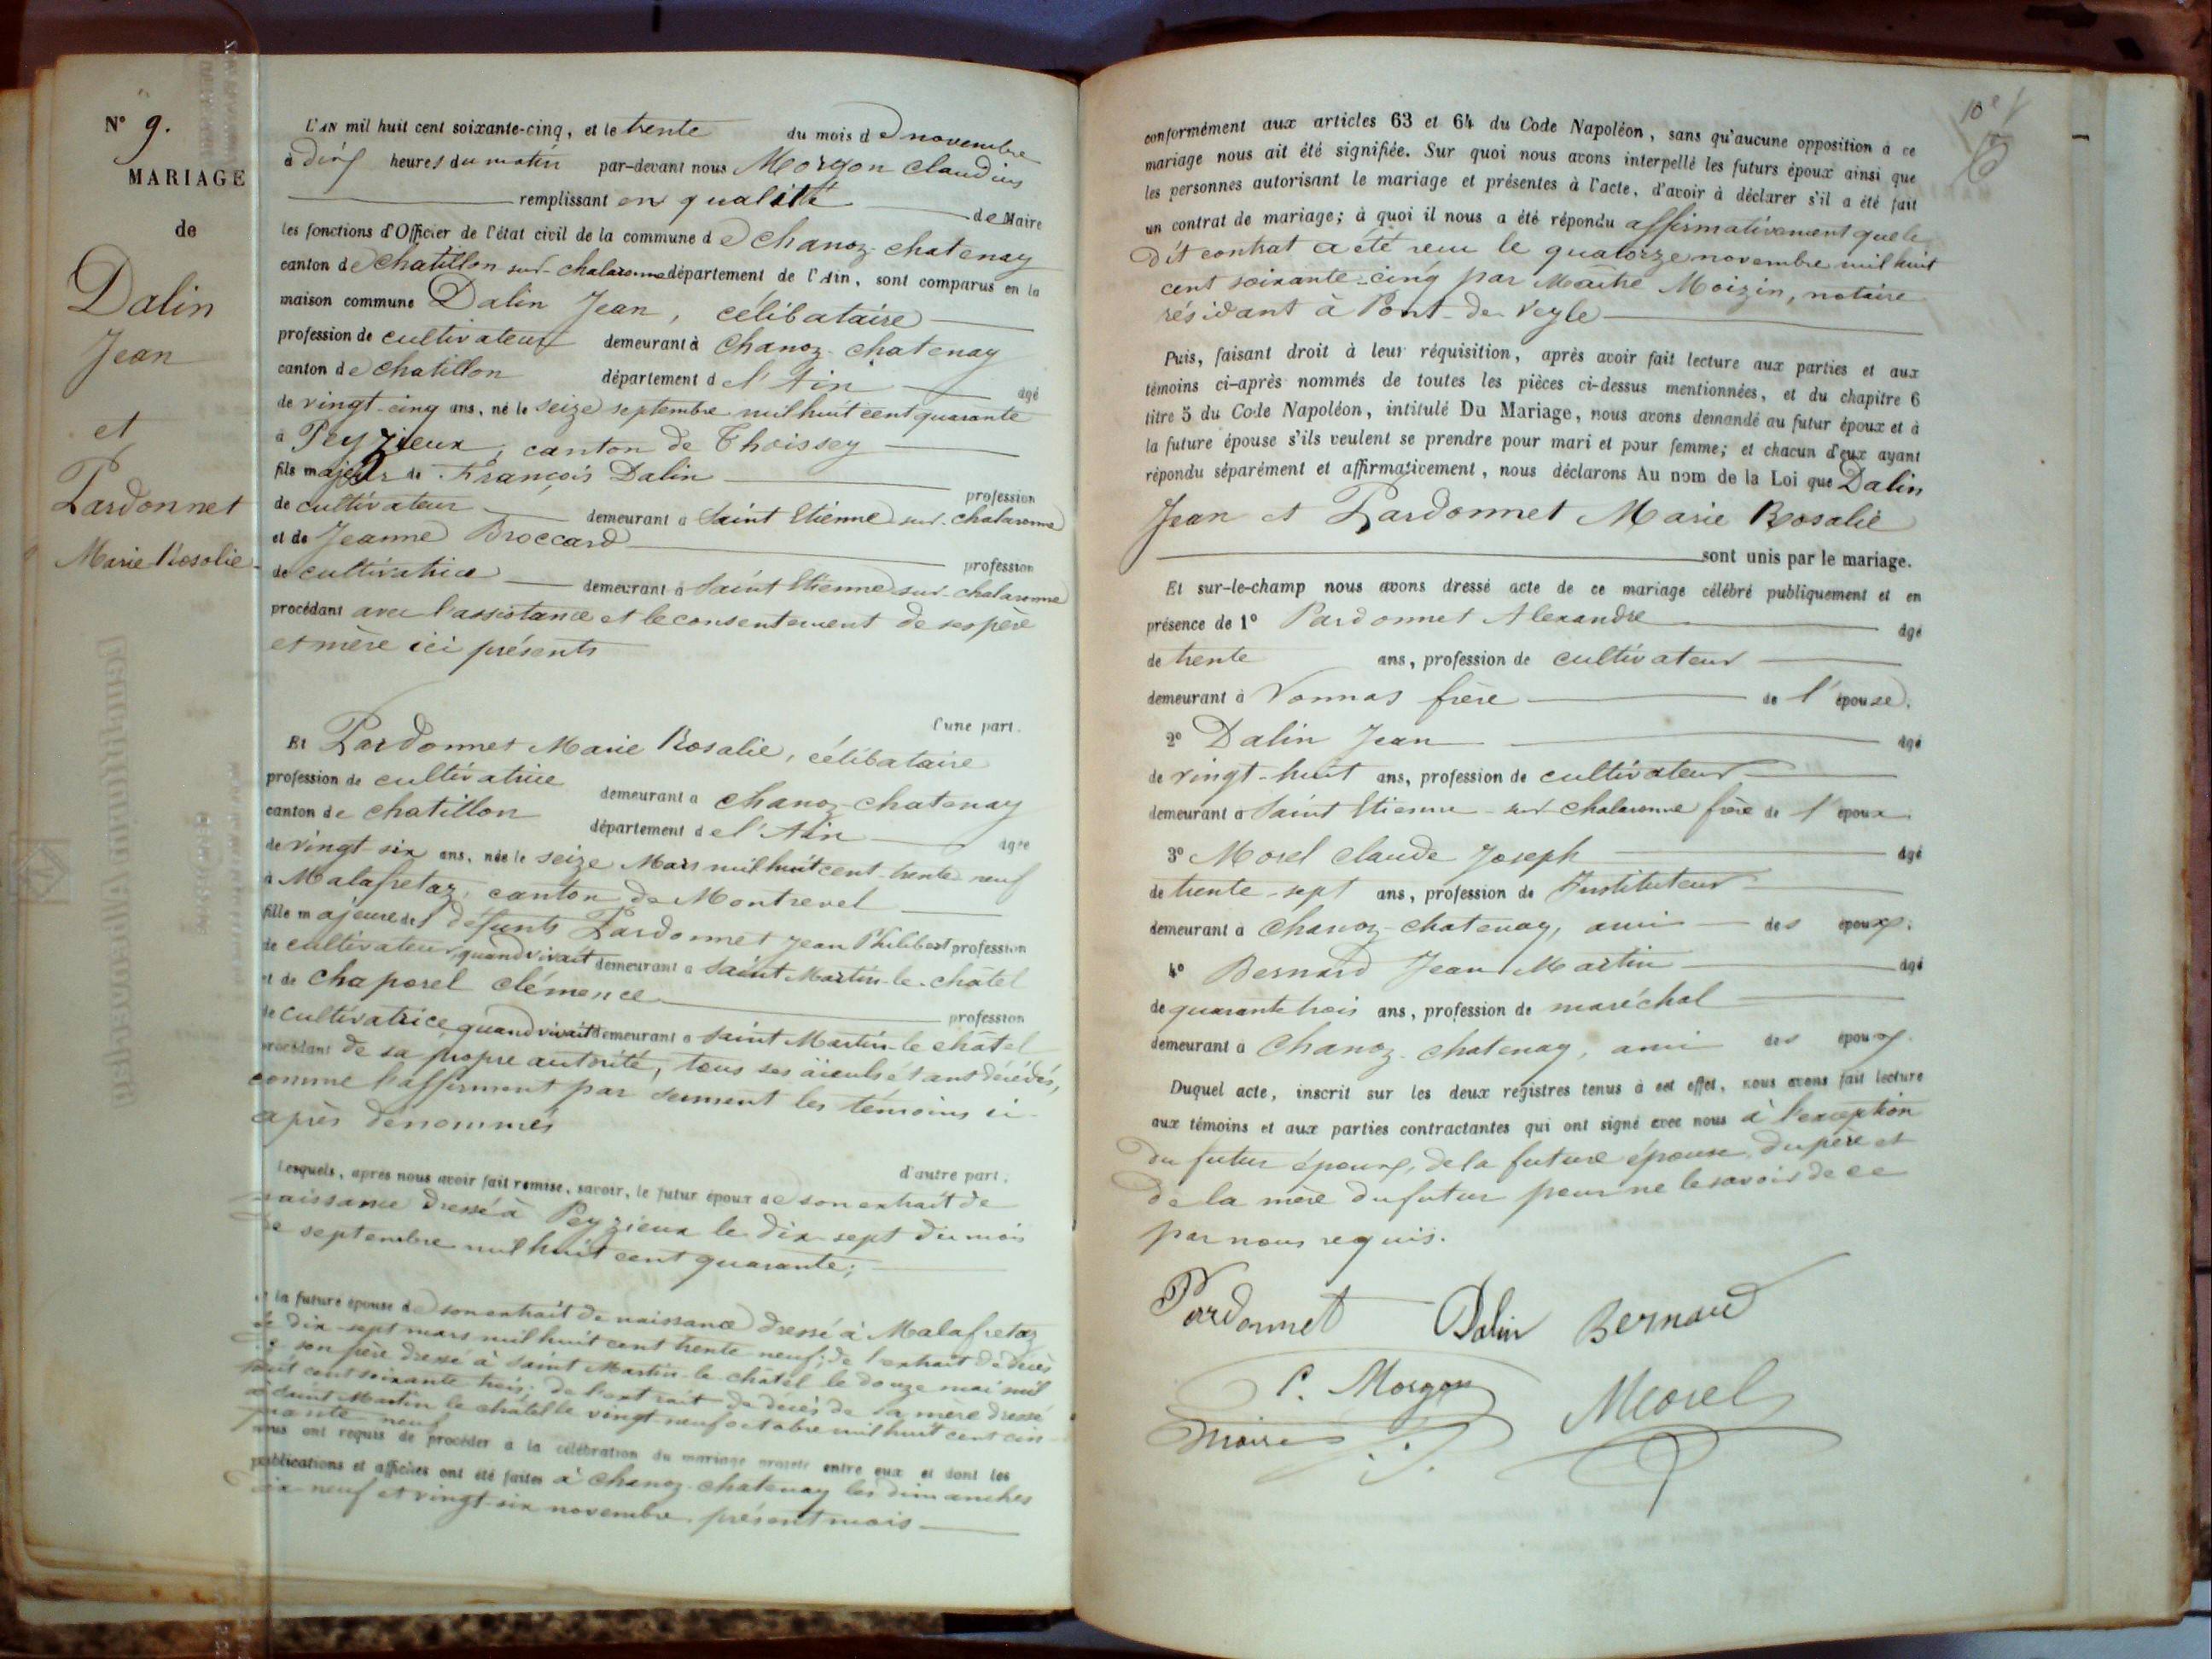 N° 9.
MARIAGE
de
Dalin
Jean
et
Pardonnet
Marie Rosalie
L'AN mil huit cent soixante-cinq, et le trente du mois de novembre
à dix heures du matin par-devant nous Morgon Claudius
remplissant en qualité de Maire
les fonctions d'Officier de l'état civil de la commune de Chanoz-chatenay
canton de Chatillon sur-chalaronne département de l'Ain, sont comparus en la
maison commune Dalin Jean, célibataire
profession de cultivateur demeurant à Chanoz-chatenay
canton de chatillon département de l'Ain âgé
de vingt-cinq ans, né le seize septembre mil huit cent quarante
à Peyzieux, canton de Thoissey
fils majeur de François Dalin
profession
de cultivateur demeurant à Saint Etienne sur-chalaronne
et de Jeanne Broccard
profession
de cultivatrice demeurant à Saint Etienne sur-chalaronne
procédant avec l'assistance et le consentement de ses père
et mère ici présents
l'une part.
Et Pardonnet Marie Rosalie, célibataire
profession de cultivatrice demeurant à chanoz-chatenay
canton de chatillon département de l'Ain âgée
de vingt-six ans, née le seize Mars mil huit cent-trente neuf
à Malafretaz, canton de Montrevel
fille majeure des défunts Pardonnet Jean Philibert profession
de cultivateur, quand vivait demeurant à Saint Martin-le-châtel
et de Chaparel clémence
profession
de cultivatrice quand vivait demeurant à Saint Martin-le châtel
procédant de sa propre autorité, tous ses aïeuls étant décédés,
comme l'affirment par serment les témoins ci-
après dénommés
d'autre part.
Lesquels, après nous avoir fait remise, savoir, le futur époux de son extrait de
naissance dressé à Peyzieux le dix-sept du mois
de septembre mil huit cent quarante;
et la future épouse de son extrait de naissance dressé à Malafretaz
le dix-sept mars mil huit cent trente neuf; de l'extrait de décès
de son père dressé à Saint Martin-le-châtel le douze mai mil
huit cent soixante trois; de l'extrait de décès de sa mère dressé
à Saint Martin le châtel le vingt-neuf octobre mil huit cent cin-
quante neuf
nous ont requis de procéder à la célébration du mariage projeté entre eux et dont les
publications et affiches ont été faites à Chanoz-chatenay les dimanches
dix-neuf et vingt-six novembre, présent mois
10e
conformément aux articles 63 et 64 du Code Napoléon, sans qu'aucune opposition à ce
mariage nous ait été signifiée. Sur quoi nous avons interpellé les futurs époux ainsi que
les personnes autorisant le mariage et présentes à l'acte, d'avoir à déclarer s'il a été fait
un contrat de mariage; à quoi il nous a été répondu affirmativement que le
dit contrat a été reçu le quatorze novembre mil huit
cent soixante-cinq par Maître Moizin, notaire
résidant à Pont-de Veyle
Puis, faisant droit à leur réquisition, après avoir fait lecture aux parties et aux
témoins ci-après nommés de toutes les pièces ci-dessus mentionnées, et du chapitre 6
titre 5 du Code Napoléon, intitulé Du Mariage, nous avons demandé au futur époux et à
la future épouse s'ils veulent se prendre pour mari et pour femme; et chacun d'eux ayant
répondu séparément et affirmativement, nous déclarons Au nom de la Loi que Dalin
Jean et Pardonnet Marie Rosalie
sont unis par le mariage.
Et sur-le-champ nous avons dressé acte de ce mariage célébré publiquement et en
présence de 1° Pardonnet Alexandre âgé
de trente ans, profession de cultivateur
demeurant à Vonnas frère de l'épouse.
2° Dalin Jean âgé
de vingt-huit ans, profession de cultivateur
demeurant à Saint Etienne-sur chalaronne frère de l'époux.
3° Morel Claude Joseph âgé
de trente-sept ans, profession de Instituteur
demeurant à Chanoz-chatenay, ami des époux.
4° Bernard Jean Martin âgé
de quarante trois ans, profession de maréchal
demeurant à Chanoz-chatenay, ami des époux.
Duquel acte, inscrit sur les deux registres tenus à cet effet, nous avons fait lecture
aux témoins et aux parties contractantes qui ont signé avec nous à l'exception
du futur époux, de la future épouse, du père et
de la mère du futur pour ne le savoir de ce
par nous requis.
Pardonnet Dalin Bernard
C. Morgon Morel
maire